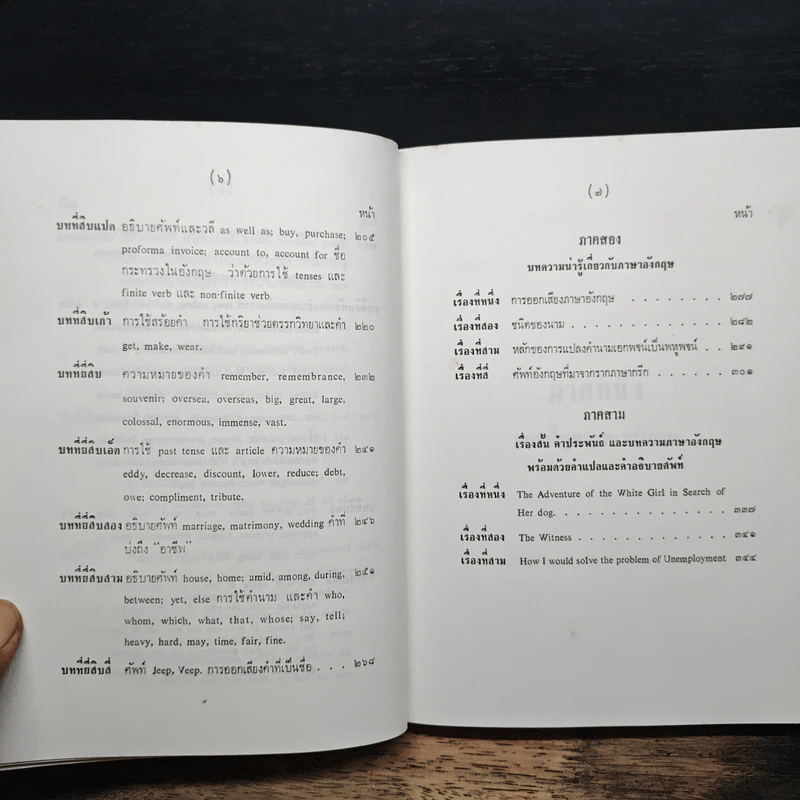 (๖)
หน้า
บทที่สิบแปด อธิบายศัพท์และวลี as well as; buy, purchase; ๒๐๕
proforma invoice; account to, account for ชื่อ
กระทรวงในอังกฤษ ว่าด้วยการใช้ tenses และ
finite verb และ non-finite verb
บทที่สิบเก้า การใช้สร้อยคำ การใช้กริยาช่วยตรรกวิทยาและคำ ๒๒๐
get, make, wear.
บทที่ยี่สิบ ความหมายของคำ remember, remembrance, ๒๓๒
souvenir; oversea, overseas, big, great, large,
colossal, enormous, immense, vast.
บทที่ยี่สิบเอ็ด การใช้ past tense และ article ความหมายของคำ ๒๔๑
eddy, decrease, discount, lower, reduce; debt,
owe; compliment, tribute.
บทที่ยี่สิบสอง อธิบายศัพท์ marriage, matrimony, wedding คำที่ ๒๔๖
บ่งถึง "อาชีพ"
บทที่ยี่สิบสาม อธิบายศัพท์ house, home; amid, among, during, ๒๕๑
between; yet, else การใช้คำนาม และคำ who,
whom, which, what, that, whose; say, tell;
heavy, hard, may, time, fair, fine.
บทที่ยี่สิบสี่ ศัพท์ Jeep, Veep. การออกเสียงคำที่เป็นชื่อ . . . ๒๖๘
(๗)
หน้า
ภาคสอง
บทความน่ารู้เกี่ยวกับภาษาอังกฤษ
เรื่องที่หนึ่ง การออกเสียงภาษาอังกฤษ . . . . . . . . ๒๗๗
เรื่องที่สอง ชนิดของนาม . . . . . . . . . . . . ๒๘๒
เรื่องที่สาม หลักของการแปลงคำนามเอกพจน์เป็นพหูพจน์ . . ๒๙๑
เรื่องที่สี่ ศัพท์อังกฤษที่มาจากรากภาษากรีก . . . . . . ๓๐๑
ภาคสาม
เรื่องสั้น คำประพันธ์ และบทความภาษาอังกฤษ
พร้อมด้วยคำแปลและคำอธิบายศัพท์
เรื่องที่หนึ่ง The Adventure of the White Girl in Search of
Her dog. . . . . . . . . . . . . . . ๓๓๗
เรื่องที่สอง The Witness . . . . . . . . . . . . ๓๔๑
เรื่องที่สาม How I would solve the problem of Unemployment ๓๔๔